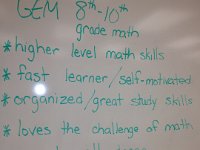 GEM 8th-10th
grade math
* higher level math skills
* fast learner/self-motivated
* organized/great study skills
* loves the challenge of math